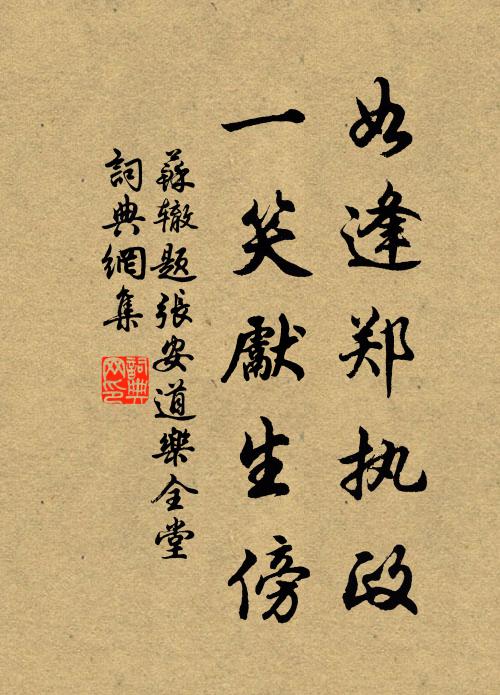 如逢郑执政
一笑獻生傍
蘇辙题張安道樂全堂
詞典網集
詞典网印